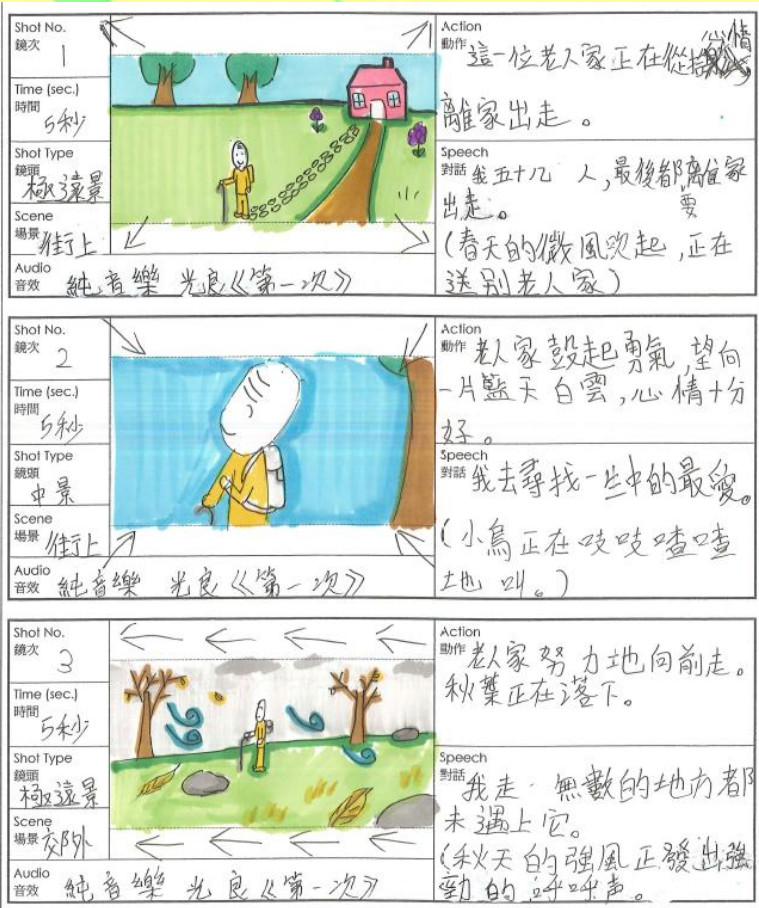 Shot No.
鏡次
1
Time (sec.)
時間
5秒
Shot Type
鏡頭
極遠景
Scene
場景 街上
Audio
音效 純音樂 光良《第一次》
Action
動作 這一位老人家正在從
離家出走。
Speech
對話 我五十几 人,最後都要離家
出走。
(春天的微風吹起,正在
送別老人家)
Shot No.
鏡次
2
Time (sec.)
時間
5秒
Shot Type
鏡頭
中景
Scene
場景 街上
Audio
音效 純音樂 光良《第一次》
Action
動作 老人家鼓起勇氣,望向
一片藍天白雲,心情十分
好。
Speech
對話 我去尋找一生中的最愛。
(小鳥正在吱吱喳喳
地叫。)
Shot No.
鏡次
3
Time (sec.)
時間
5秒
Shot Type
鏡頭
極遠景
Scene
場景 郊外
Audio
音效 純音樂 光良《第一次》
Action
動作 老人家努力地向前走。
秋葉正在落下。
Speech
對話 我走 無數的地方都
未遇上它。
(秋天的強風正發出強
勁的呼呼声。